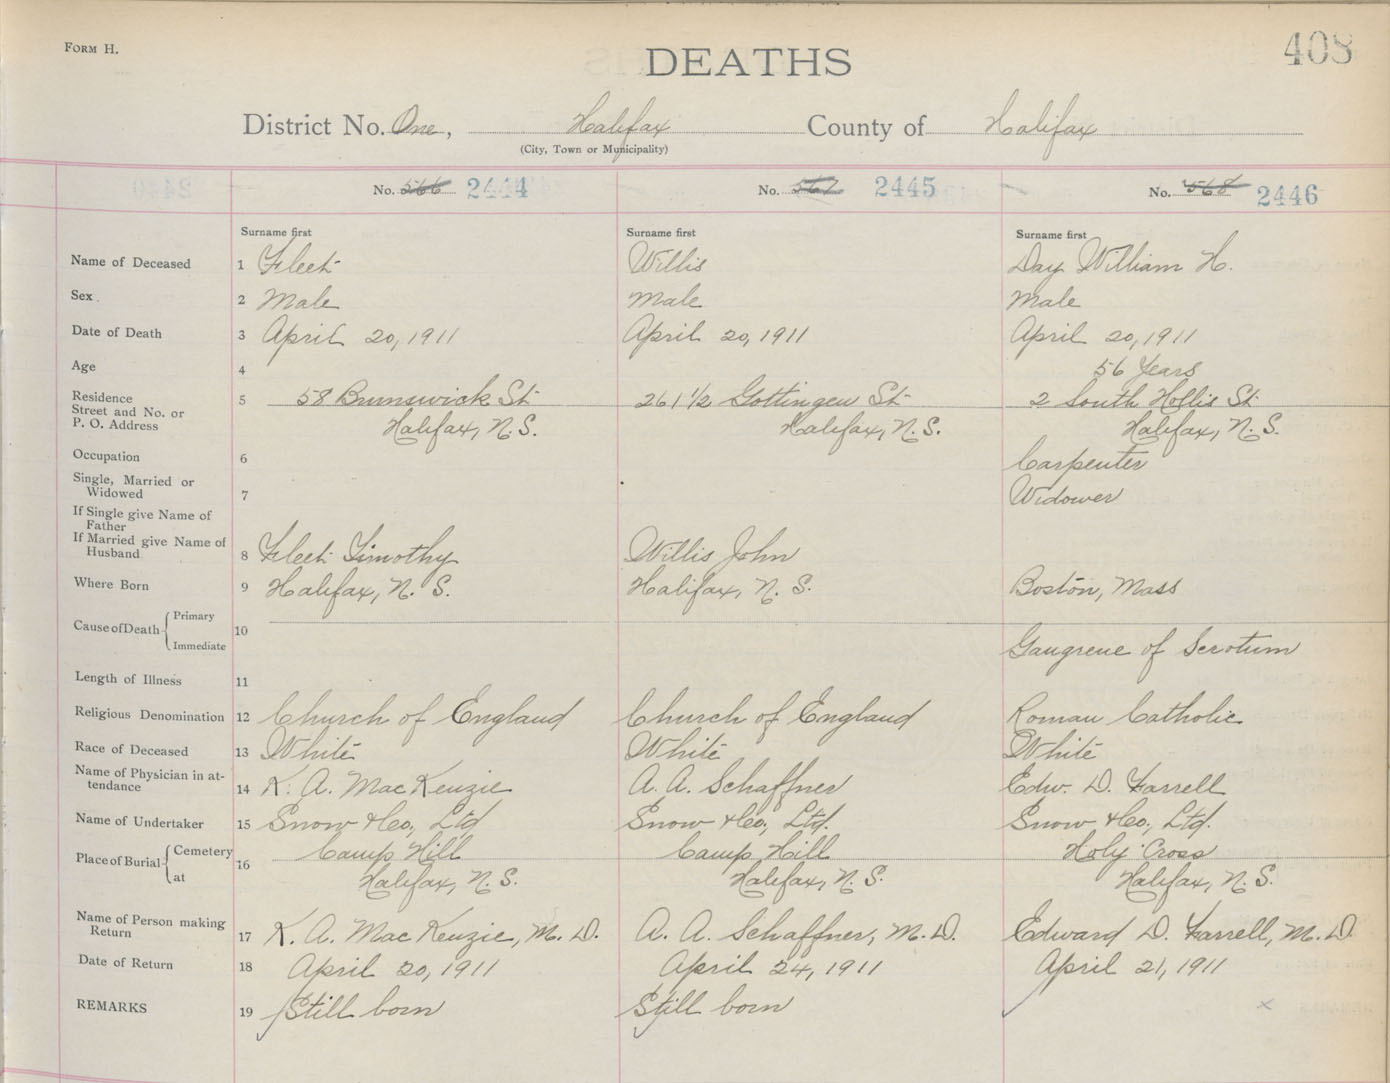 FORM H.
408
DEATHS
District No. One, Halifax County of Halifax
(City, Town or Municipality)
No. 566 2444
No. 567 2445
No. 568 2446
Surname first
Surname first
Surname first
Name of Deceased 1 Fleet Willis Day William H.
Sex. 2 Male Male Male
Date of Death 3 April 20, 1911 April 20, 1911 April 20, 1911
Age 4 56 Years
Residence
Street and No. or 5 58 Brunswick St 261 1/2 Gottingen St 2 South Hollis St
P. O. Address Halifax, N.S. Halifax, N.S. Halifax, N.S.
Occupation 6 Carpenter
Single, Married or
Widowed 7 Widower
If Single give Name of
Father
If Married give Name of
Husband 8 Fleet Timothy Willis John
Where Born 9 Halifax, N. S. Halifax, N. S. Boston, Mass
Cause of Death { Primary
10
Immediate Gangrene of Scrotum
Length of Illness 11
Religious Denomination 12 Church of England Church of England Roman Catholic
Race of Deceased 13 White White White
Name of Physician in at-
tendance 14 K. A. MacKenzie A. A. Schaffner Edw. D. Farrell
Name of Undertaker 15 Snow & Co., Ltd Snow & Co., Ltd. Snow & Co., Ltd.
Place of Burial { Cemetery 16 Camp Hill Camp Hill Holy Cross
at Halifax, N.S. Halifax, N.S. Halifax, N.S.
Name of Person making
Return 17 K. A. MacKenzie, M. D. A. A. Schaffner, M. D. Edward D. Farrell, M. D.
Date of Return 18 April 20, 1911 April 24, 1911 April 21, 1911
REMARKS 19 Still born Still born x